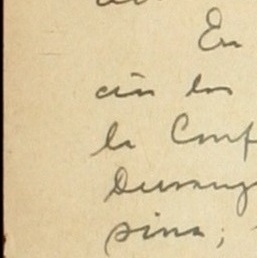 En
cin los
la Conf
Durang
sina;